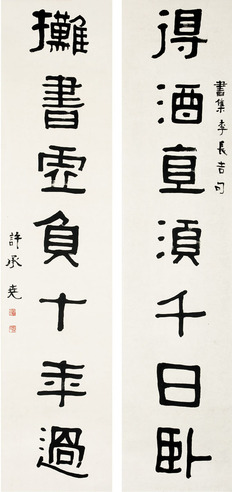 得酒直須千日臥
書集李長吉句
攤書虛負十年過
許承堯